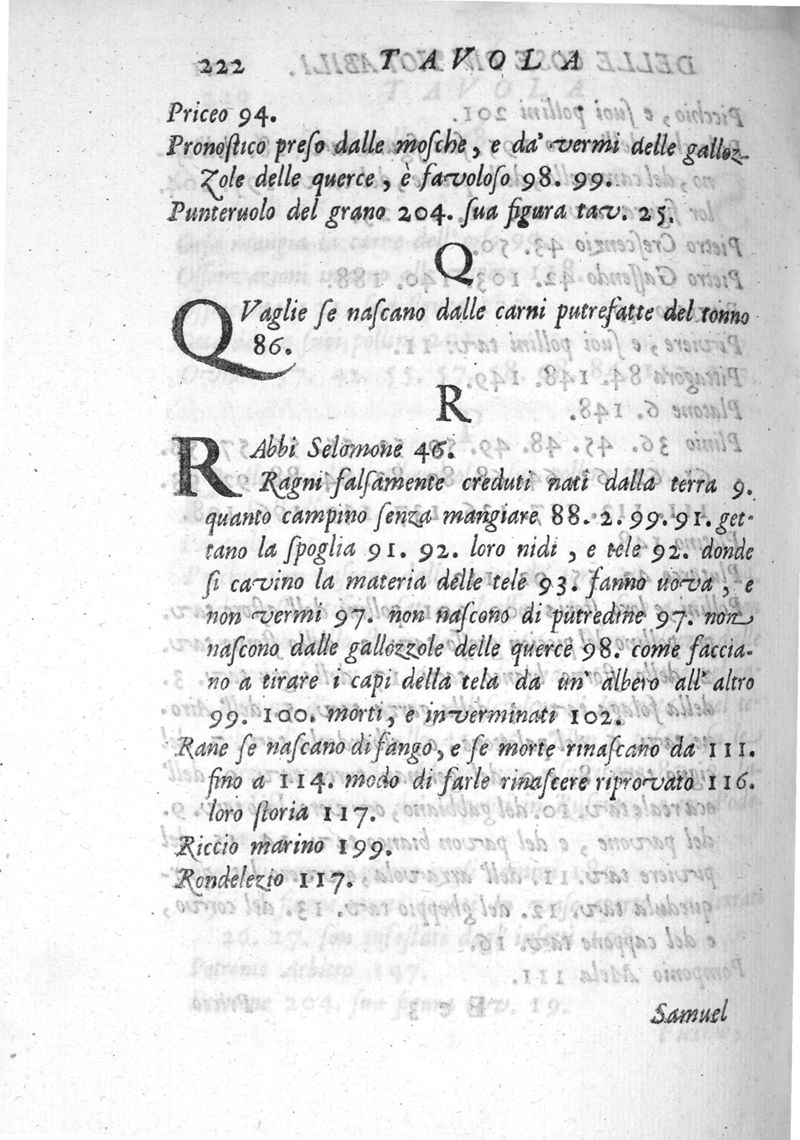 222 TAVOLA
Priceo 94.
Pronoſtico preſo dalle moſche, e da' vermi delle galloz-
zole delle querce, è favoloſo 98. 99.
Punteruolo del grano 204. ſua figura tav. 25.
Q
QVaglie ſe naſcano dalle carni putrefatte del tonno
86.
R
RAbbi Selomone 46.
Ragni falſamente creduti nati dalla terra 9.
quanto campino ſenza mangiare 88. 2. 99. 91. get-
tano la ſpoglia 91. 92. loro nidi, e tele 92. donde
ſi cavino la materia delle tele 93. fanno uova, e
non vermi 97. non naſcono di putredine 97. non
naſcono dalle gallozzole delle querce 98. come faccia-
no a tirare i capi della tela da un' albero all' altro
99. 100. morti, e inverminati 102.
Rane ſe naſcano di fango, e ſe morte rinaſcano da 111.
fino a 114. modo di farle rinaſcere riprovato 116.
loro ſtoria 117.
Riccio marino 199.
Rondelezio 117.
Samuel